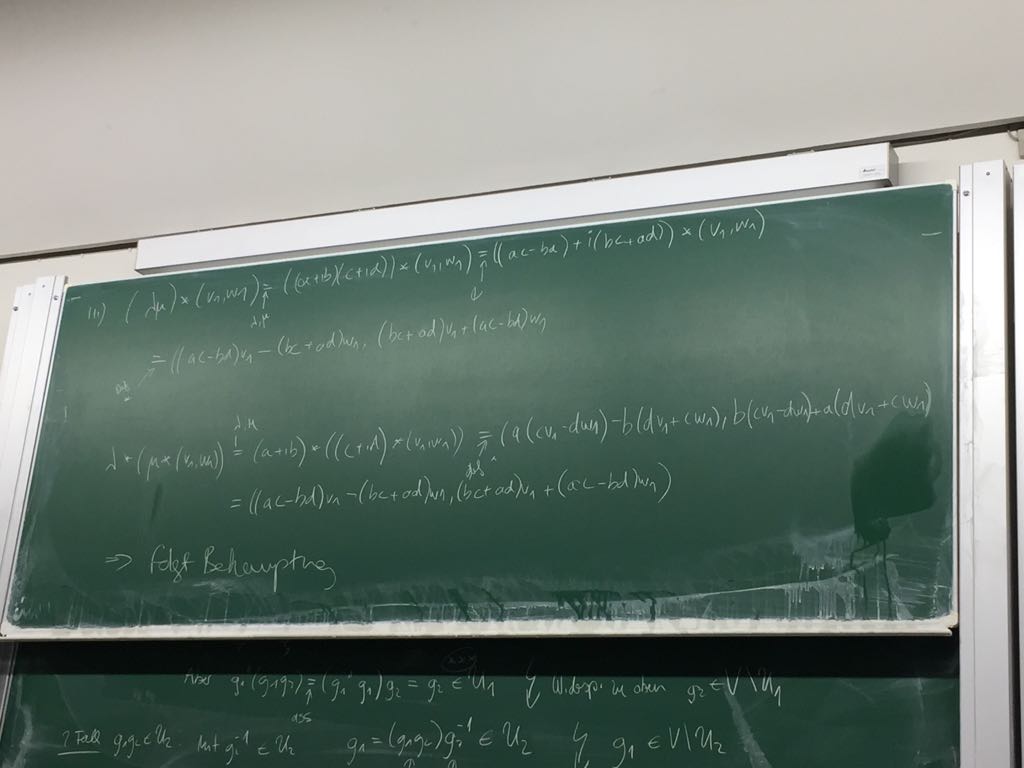 iii) (λμ) * (v₁,w₁) = ((a+ib)(c+id)) * (v₁,w₁) = ((ac-bd) + i(bc+ad)) * (v₁,w₁)
λ,μ ℂ
= ((ac-bd)v₁ - (bc+ad)w₁, (bc+ad)v₁ + (ac-bd)w₁)
Def *
λ,μ
λ * (μ * (v₁,w₁)) = (a+ib) * ((c+id) * (v₁,w₁)) = (a(cv₁-dw₁) - b(dv₁+cw₁), b(cv₁-dw₁) + a(dv₁+cw₁))
Def
= ((ac-bd)v₁ - (bc+ad)w₁, (bc+ad)v₁ + (ac-bd)w₁)
⇒ folgt Behauptung
Aber g₁⁻¹(g₁g₂) = (g₁⁻¹g₁)g₂ = g₂ ∈ U₁ ↯ Widerspr. zu oben g₂ ∈ V\U₁
ass
2. Fall g₁g₂ ∈ U₂. Mit g₂⁻¹ ∈ U₂ g₁ = (g₁g₂)g₂⁻¹ ∈ U₂ ↯ g₁ ∈ V\U₂